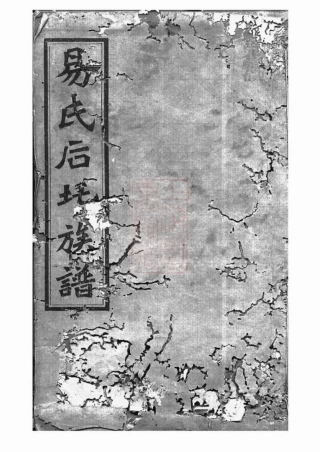 易氏后坪族譜